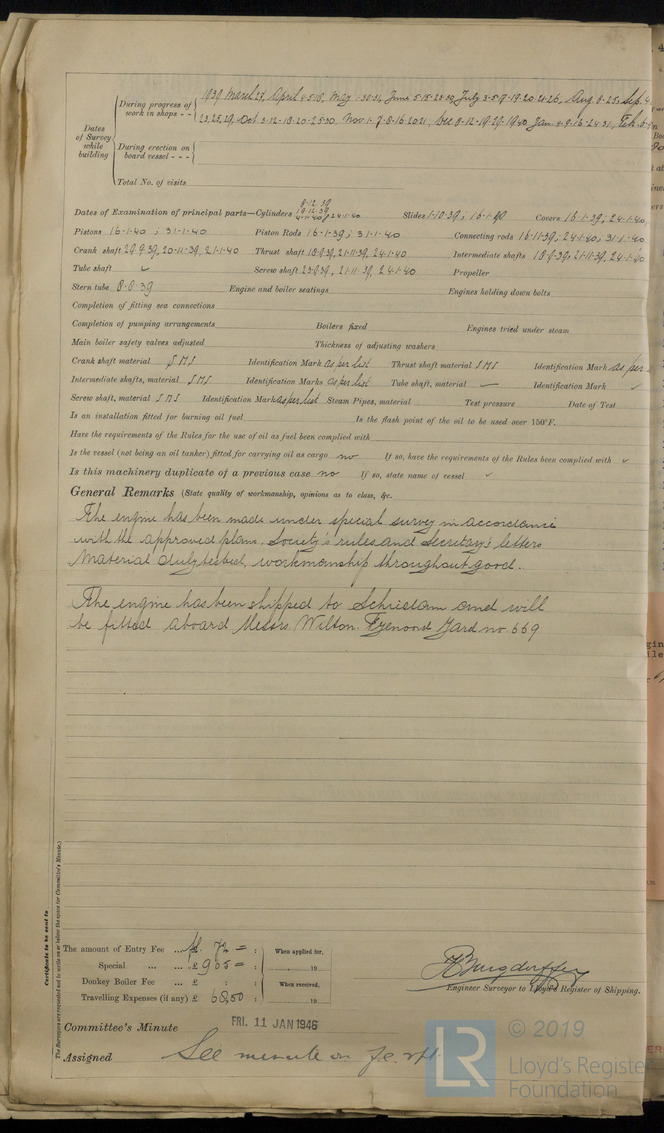 Dates of Survey while building
During progress of work in shops - - 1939 March 27, April 4-5-18, May 1-30-31, June 5-15-23-30, July 3-5-9-19-20-24-26, Aug 8-25, Sep. 4
23,25,29, Oct 3-12-18-20-25-30, Nov 1-7-8-16 20 21, Dec 8-12-19-29-1940 Jan 4-9-16-24-31, Feb.
During erection on board vessel - - -
Total No. of visits
Dates of Examination of principal parts—Cylinders 8-12-39 19-12-39 4-1-40, 24-1-40 Slides 1-10-39; 16-1-40 Covers 16-1-39, 24-1-40,
Pistons 16-1-40; 31-1-40 Piston Rods 16-1-39; 31-1-40 Connecting rods 16-11-39, 24-1-40, 31-1-40
Crank shaft 29-9-39, 20-11-39, 24-1-40 Thrust shaft 18-9-39, 21-11-39, 24-1-40 Intermediate shafts 18-9-39, 21-11-39, 24-1-40
Tube shaft ✓ Screw shaft 23-9-39, 21-11-39, 24-1-40 Propeller
Stern tube 8-8-39 Engine and boiler seatings Engines holding down bolts
Completion of fitting sea connections
Completion of pumping arrangements Boilers fixed Engines tried under steam
Main boiler safety valves adjusted Thickness of adjusting washers
Crank shaft material SMS Identification Mark as per list Thrust shaft material SMS Identification Mark as per
Intermediate shafts, material SMS Identification Marks as per list Tube shaft, material — Identification Mark ✓
Screw shaft, material SMS Identification Mark as per list Steam Pipes, material Test pressure Date of Test
Is an installation fitted for burning oil fuel Is the flash point of the oil to be used over 150°F.
Have the requirements of the Rules for the use of oil as fuel been complied with
Is the vessel (not being an oil tanker) fitted for carrying oil as cargo no If so, have the requirements of the Rules been complied with ✓
Is this machinery duplicate of a previous case no If so, state name of vessel ✓
General Remarks (State quality of workmanship, opinions as to class, &c.
The engine has been made under special survey in accordance
with the approved plans, Society's rules and Secretary's letters
Material duly tested, workmanship throughout good.
The engine has been shipped to Schiedam and will
be fitted aboard Messrs Wilton Fyenoord Yard no 669
Certificate to be sent to
The Surveyors are requested not to write on or below the space for Committee's Minute.)
The amount of Entry Fee ... fl. 72 = :
Special ... ... £ 905 = :
Donkey Boiler Fee ... £ :
Travelling Expenses (if any) £ 68,50 :
When applied for,
19
When received,
19
Engineer Surveyor to Lloyd's Register of Shipping.
Committee's Minute FRI. 11 JAN 1946
Assigned See minute on F.E. rpt.
LR
© 2019
Lloyd's Register
Foundation